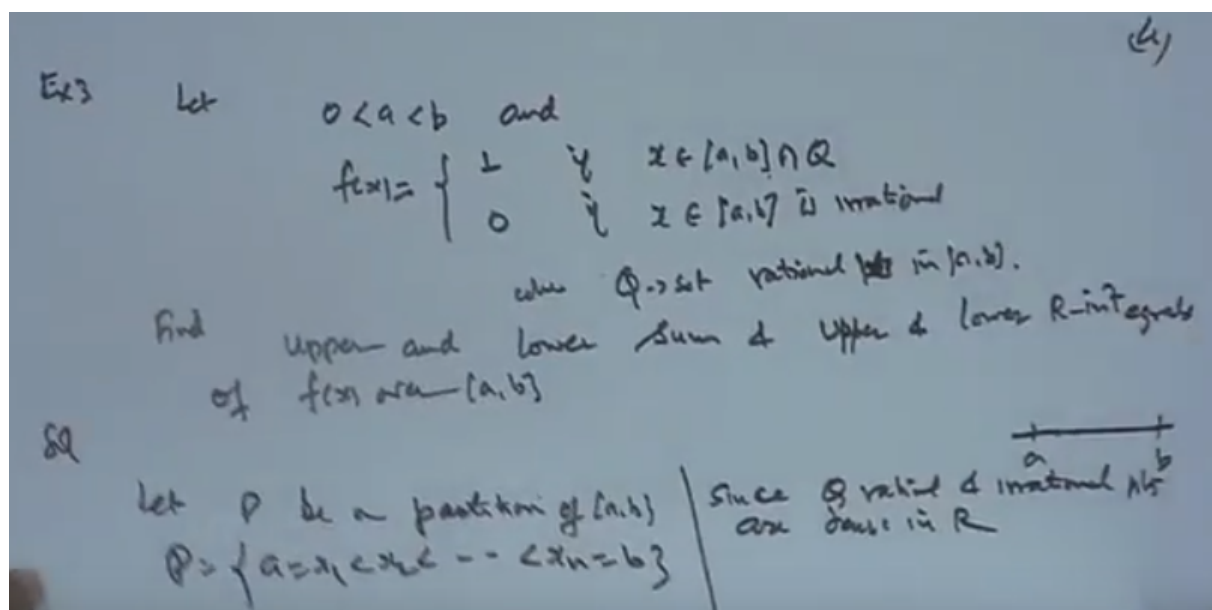 (4)
Ex3 Let 0 < a < b and
f(x) = { 1 if x ∈ [a, b] ∩ Q
0 if x ∈ [a, b] is irrational
where Q → set rational in [a, b].
Find upper and lower sum & upper & lower R-integrals
of f(x) over [a, b]
Sol
a b
Let P be a partition of [a, b]
P = { a = x1 < x2 < -- < xn = b }
Since Q rational & irrational pts
are dense in R